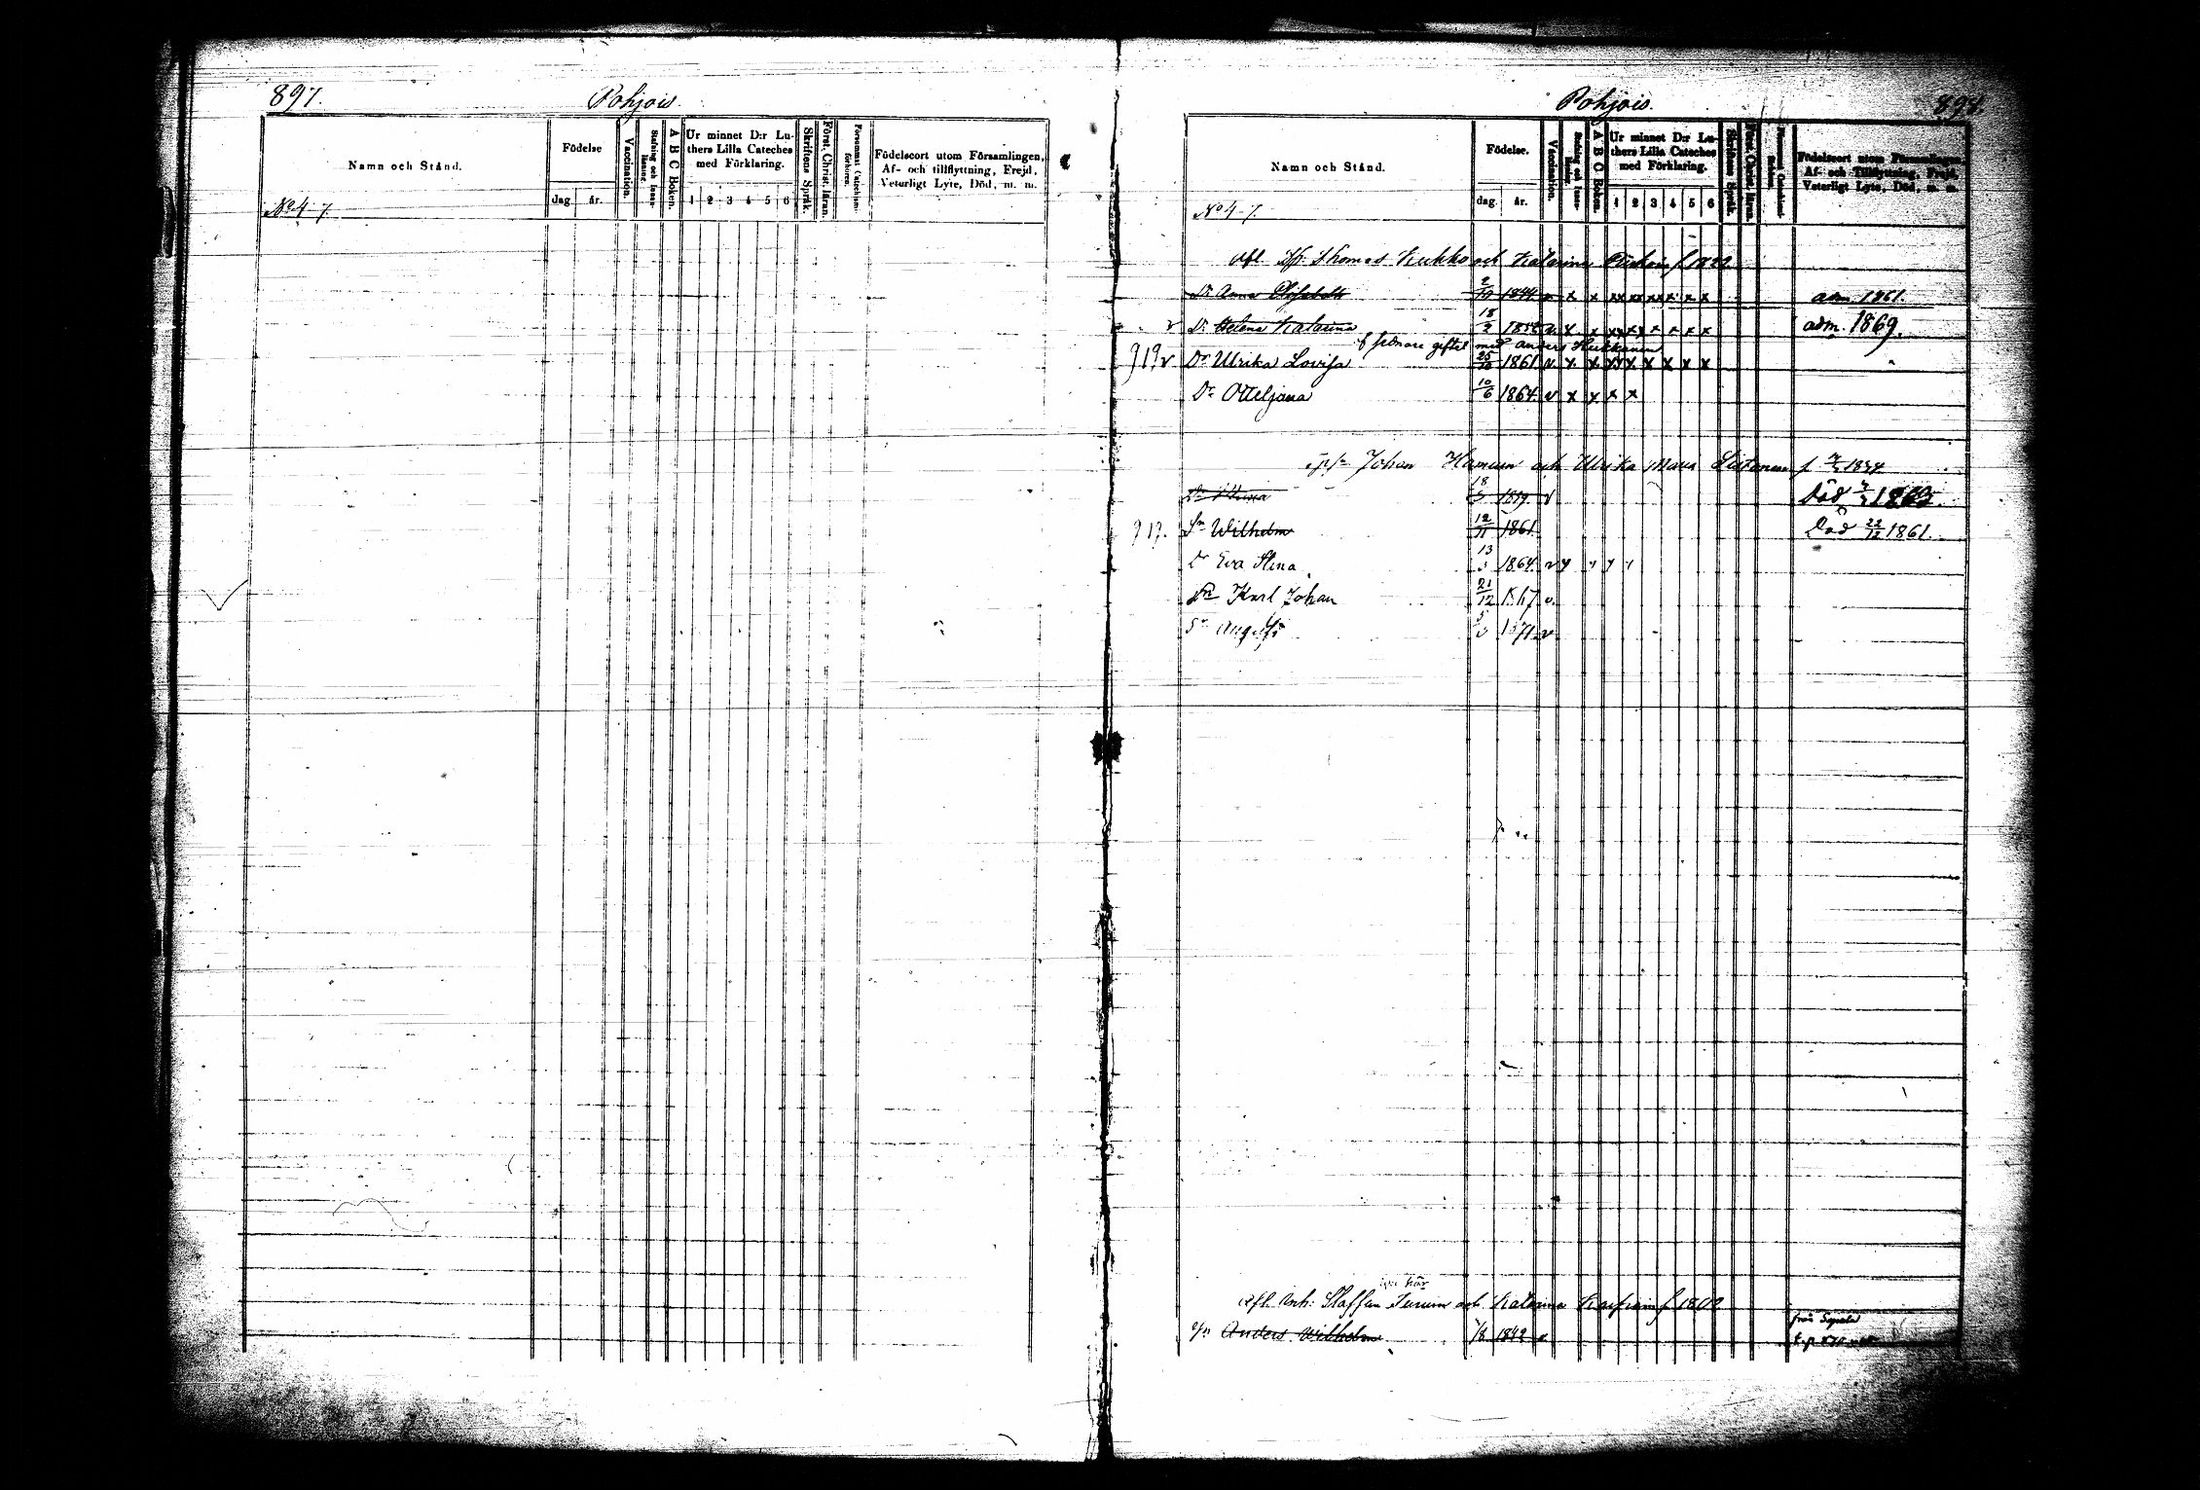 897.
Pohjois.
Namn och Stånd.
Födelse
dag.
år.
Vaccination.
Stafning och Innanläsning.
A B C Boken.
Ur minnet D:r Luthers Lilla Cateches med Förklaring.
1 2 3 4 5 6
Skriftens Språk.
Först. Christ. läran.
Försummat Catechismi-förhören.
Födelseort utom Församlingen,
Af- och tillflyttning, Frejd,
Veterligt Lyte, Död, m. m.
No 4 7.
Pohjois.
898.
Namn och Stånd.
Födelse.
dag.
år.
Vaccination.
A B C Boken.
Ur minnet D:r Luthers Lilla Cateches med Förklaring.
1 2 3 4 5 6
Skriftens Språk.
Först. Christ. läran.
Födelseort utom Församlingen,
Af- och Tillflyttning, Frejd,
Veterligt Lyte, Död, m. m.
No 4 7.
Thomas Kukko och Katarina f 1822
Dr Anna Elisabeth 2/10 1844 v x x xx xx xx x x x adm. 1861.
v Dr Helena Katarina 18/2 1852 v x x xx xx x x x x adm. 1869.
gift med Anders
919 v Dr Ulrika Lovisa 25/10 1861 v x x xx x x x x x
Dr Otteljana 10/6 1864 v x x x x
Johan och Ulrika Maria f 1834
18/5 1859 v Död 1863.
919. Sn Wilhelm 12/11 1861 Död 22/12 1861.
Dr Eva Stina 13/3 1864 v
Sn Karl Johan 21/12 1867 v
Sn August 1871 v
Staffan och Katarina f 1802
Anders Wilhelm 1/8 1842 v
från